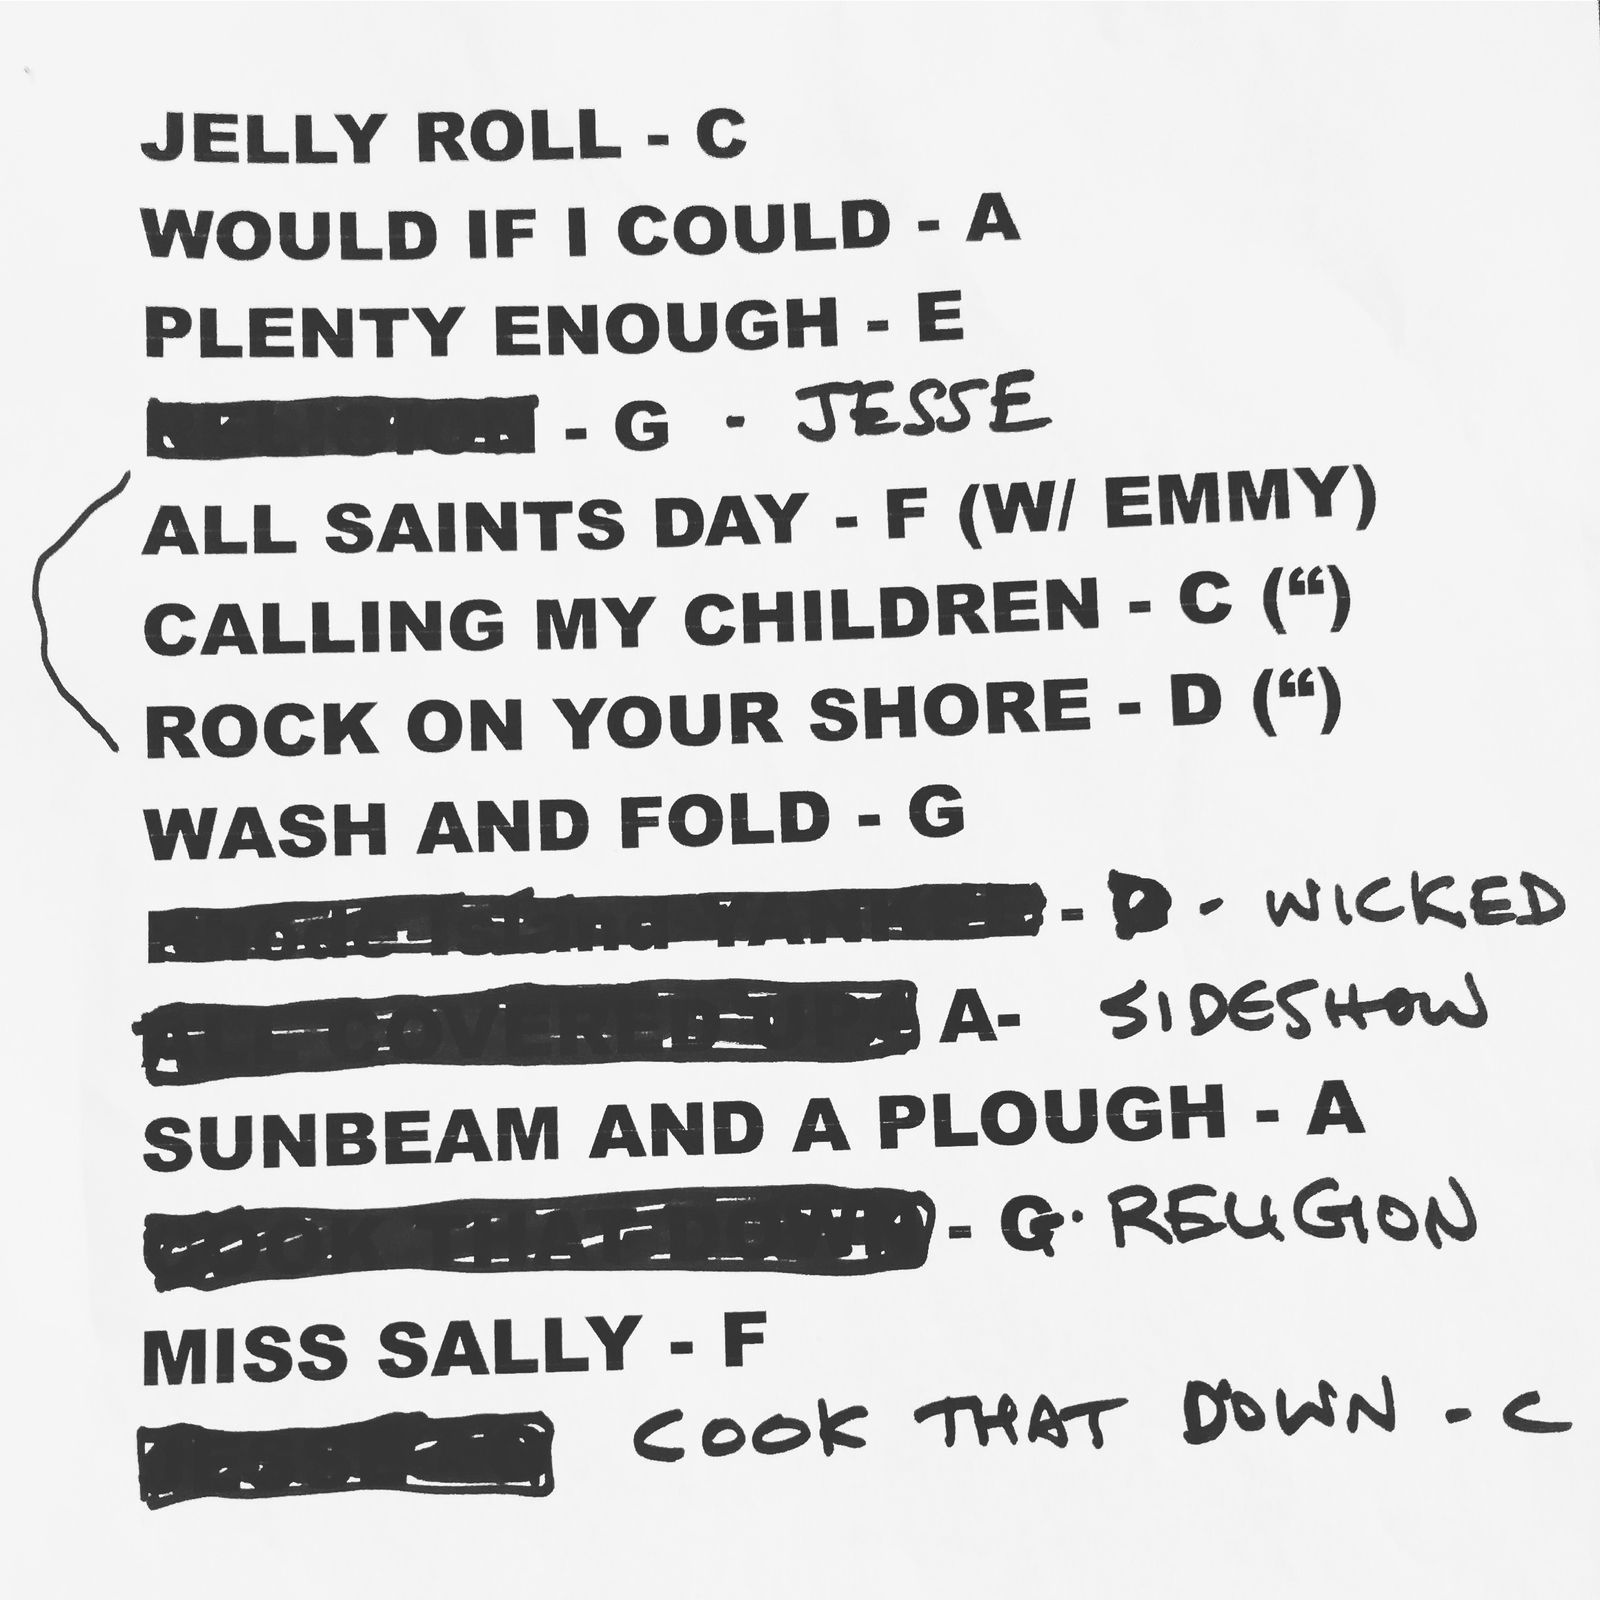 JELLY ROLL - C
WOULD IF I COULD - A
PLENTY ENOUGH - E
- G - JESSE
ALL SAINTS DAY - F (W/ EMMY)
CALLING MY CHILDREN - C (“)
ROCK ON YOUR SHORE - D (“)
WASH AND FOLD - G
- D - WICKED
A- SIDESHOW
SUNBEAM AND A PLOUGH - A
- G · RELIGION
MISS SALLY - F
COOK THAT DOWN - C